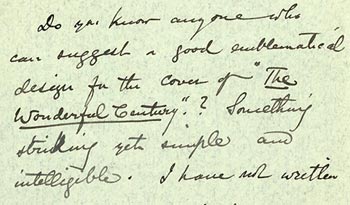 Do you know anyone who
can suggest a good emblematical
design for the cover of "The
Wonderful Century".? Something
striking yet simple and
intelligible. I have not written